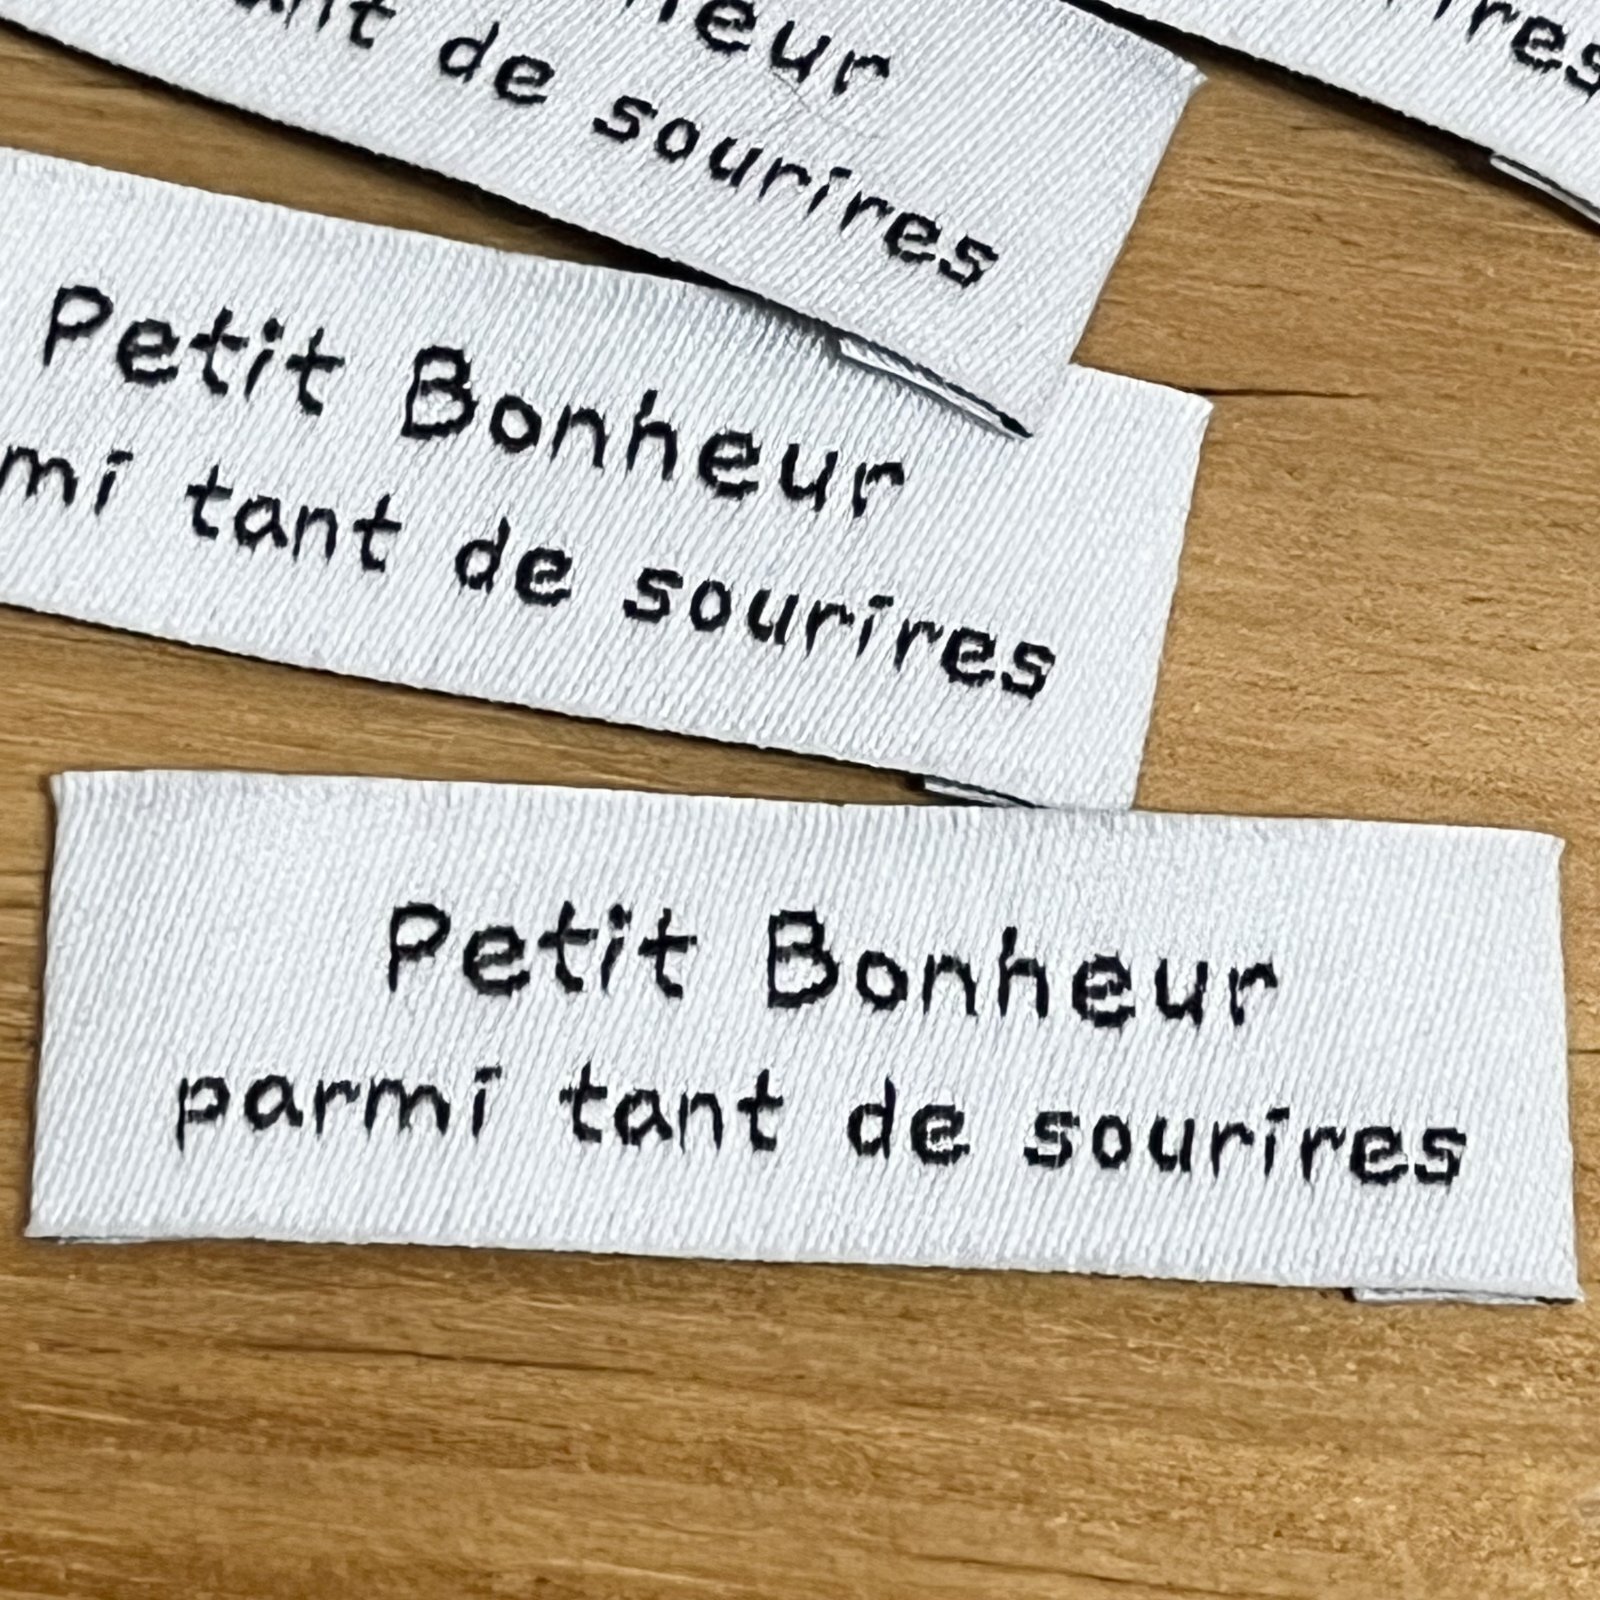 de sourires
Petit Bonheur
tant de sourires
Petit Bonheur
parmi tant de sourires